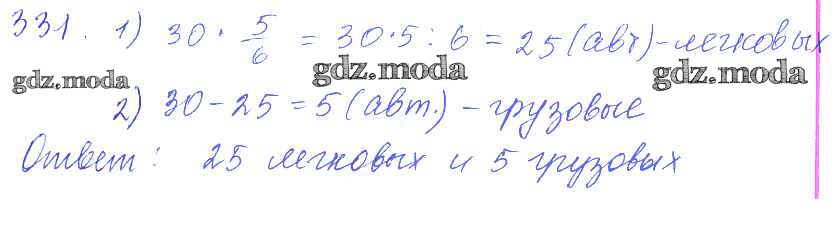 331. 1) 30 · 5/6 = 30·5:6 = 25 (авт) - легковых
gdz.moda gdz.moda gdz.moda
2) 30 - 25 = 5 (авт.) - грузовые
Ответ: 25 легковых и 5 грузовых